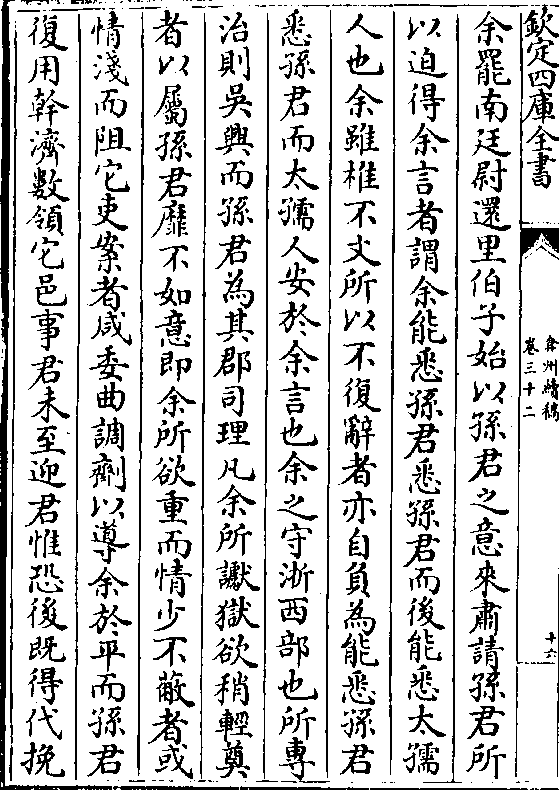 欽定四庫全書
弇州續稿
卷三十二
十六
余罷南廷尉還里伯子始以孫君之意來肅請孫君所
以迫得余言者謂余能悉孫君悉孫君而後能悉太孺
人也余雖椎不文所以不復辭者亦自負為能悉孫君
悉孫君而太孺人安於余言也余之守浙西部也所專
治則吳興而孫君為其郡司理凡余所讞獄欲稍輕奠
者以屬孫君靡不如意即余所欲重而情少不蔽者或
情淺而阻它吏案者咸委曲調劑以導余於平而孫君
復用幹濟數領它邑事君未至迎君惟恐後既得代挽